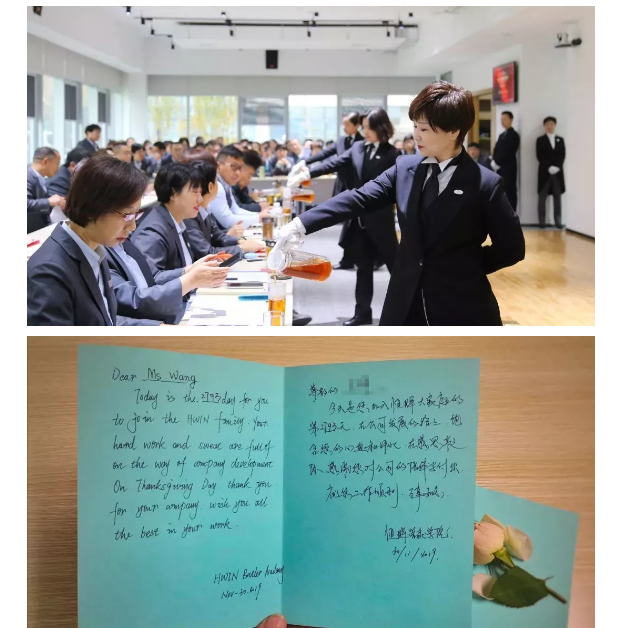 Dear Ms Wang
Today is the 2793 day for you
to join in the HWIN family. Your
hard work and sweat are full of
on the way of company development
On Thanksgiving Day thank you
for your company, wish you all
the best in your work.
HWIN Butler Academy
Nov-30.
尊敬的
今天是您加入大家庭的
第2793天,在公司发展的路上,饱
含您的心血和汗水,在感恩
际,感谢您对公司的陪伴
工作顺利
学院
30/11/2019